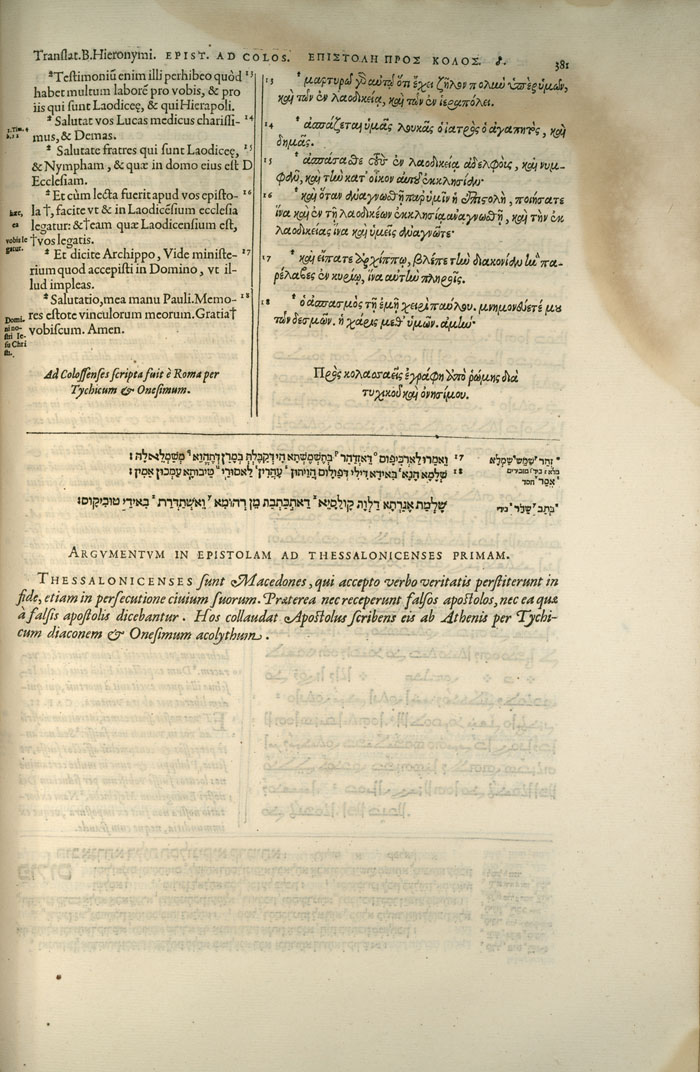 Translat.B.Hieronymi. EPIST. AD COLOS. ΕΠΙΣΤΟΛΗ ΠΡΟΣ ΚΟΛΟΣ. 381
Testimoniū enim illi perhibeo quòd 13
habet multum laborē pro vobis, & pro
iis qui sunt Laodiceę, & qui Hierapoli.
Salutat vos Lucas medicus charissi- 14
mus, & Demas.
Salutate fratres qui sunt Laodiceę, 15
& Nympham, & quæ in domo eius est D
Ecclesiam.
Et cùm lecta fuerit apud vos episto- 16
la †, facite vt & in Laodicēsium ecclesia
legatur: & †eam quæ Laodicensium est,
†vos legatis.
Et dicite Archippo, Vide ministe- 17
rium quod accepisti in Domino, vt il-
lud impleas.
Salutatio, mea manu Pauli. Memo- 18
res estote vinculorum meorum. Gratia†
vobiscum. Amen.
1. Tim. 4
hæc,
ea
vobis le
gatur.
Domi
ni no-
stri Ie-
su Chri
sti.
Ad Colossenses scripta fuit è Roma per
Tychicum & Onesimum.
13 μαρτυρῶ γὰρ αὐτῷ ὅτι ἔχει ζῆλον πολιὼ ὑπὲρ ὑμῶν,
καὶ τῶν ἐν λαοδικείᾳ, καὶ τῶν ἐν ἱεραπόλει.
14 ἀσπάζεται ὑμᾶς λουκᾶς ὁ ἰατρὸς ὁ ἀγαπητὸς, καὶ
δημᾶς.
15 ἀσπάσασθε τοὺς ἐν λαοδικείᾳ ἀδελφοὺς, καὶ νυμ-
φᾶν, καὶ τὴν κατ' οἶκον αὐτοῦ ἐκκλησίαν·
16 καὶ ὅταν ἀναγνωσθῇ παρ' ὑμῖν ἡ ἐπιστολὴ, ποιήσατε
ἵνα καὶ ἐν τῇ λαοδικέων ἐκκλησίᾳ ἀναγνωσθῇ, καὶ τὴν ἐκ
λαοδικείας ἵνα καὶ ὑμεῖς ἀναγνῶτε·
17 καὶ εἴπατε ἀρχίππῳ, βλέπε τὴν διακονίαν ἣν πα-
ρέλαβες ἐν κυρίῳ, ἵνα αὐτὴν πληροῖς.
18 ὁ ἀσπασμὸς τῇ ἐμῇ χειρὶ παύλου. μνημονεύετέ μου
τῶν δεσμῶν. ἡ χάρις μεθ' ὑμῶν. ἀμήν·
Πρὸς κολασσαεῖς ἐγράφη ἀπὸ ῥώμης διὰ
τυχικοῦ καὶ ὀνησίμου.
17 ואמרו לארכיפוס דאזדהר בתשמשתא הי דקבלת במרן דתהוא משמלא לה:
18 שלמא הנא באידא דילי דפולוס הויתון עהדין לאסורי טיבותא עמכון אמין:
שלמת אגרתא דלות קולסיא דאתכתבת מן רהומא ואשתדרת באידי טוכיקוס:
ARGVMENTVM IN EPISTOLAM AD THESSALONICENSES PRIMAM.
THESSALONICENSES sunt Macedones, qui accepto verbo veritatis perstiterunt in
fide, etiam in persecutione ciuium suorum. Præterea nec receperunt falsos apostolos, nec ea quæ
à falsis apostolis dicebantur. Hos collaudat Apostolus scribens eis ab Athenis per Tychi-
cum diaconem & Onesimum acolythum.